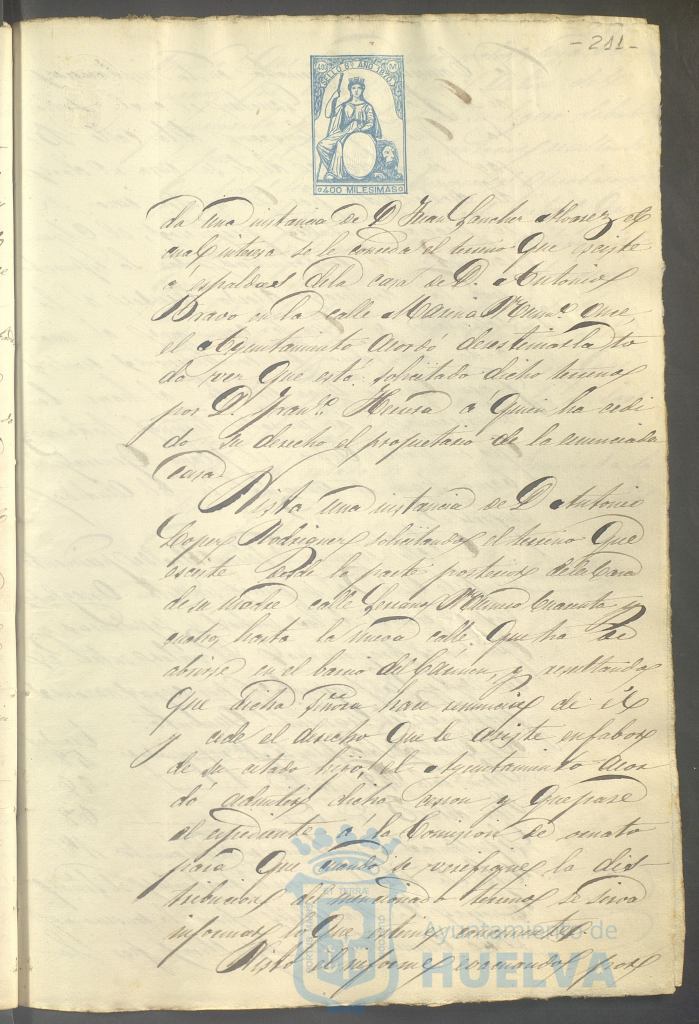 - 211 -
SELLO 9º AÑO 1870
400 MILESIMAS
da una instancia de D. Juan Sanchez Alvarez el
cual interesa se le conceda el terreno que existe
a espaldas de la casa de D. Antonio
Bravo en la calle Marina Numº once,
el Ayuntamiento acordó desestimarla to
da vez que está solicitado dicho terreno
por D. Franco a quien ha cedi
do su derecho el propietario de la anunciada
casa.
Vista una instancia de D. Antonio
Lopez Rodriguez solicitando el terreno que
existe desde la parte posterior de la casa
de su madre calle Numero cuarenta y
ocho, hasta la nueva calle que ha de
abrirse en el barrio del Carmen, y resultando
que dicha Señora hace renuncia de él
y cede el derecho que le asiste en fabor
de su citado hijo, el Ayuntamiento acor
dó admitir dicha cesion y que pase
el espediente á la Comision de ornato
para que cuando se verifique la dis
tribucion del mencionado terreno se sirva
informar lo que estime conveniente.
Visto el informe por
Ayuntamiento de
HUELVA